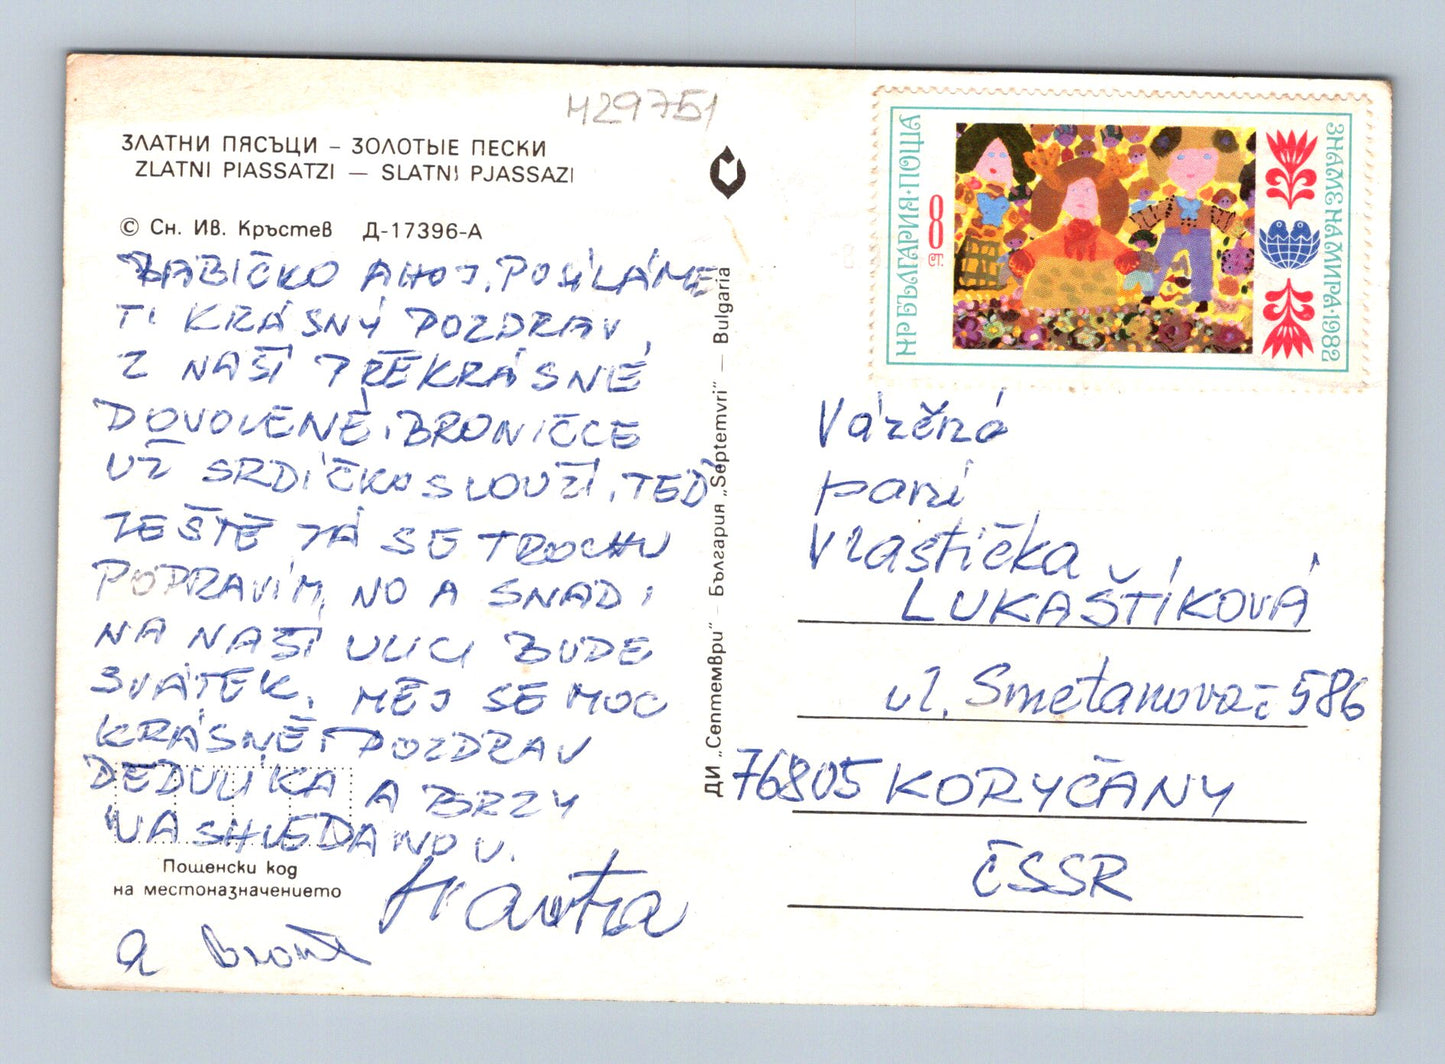 H29751
ЗЛАТНИ ПЯСЪЦИ – ЗОЛОТЫЕ ПЕСКИ
ZLATNI PIASSATZI — SLATNI PJASSAZI
© Сн. Ив. Кръстев Д-17396-А
BABIČKO AHOJ, POSÍLÁME
TI KRÁSNÝ POZDRAV
Z NAŠÍ PŘEKRÁSNÉ
DOVOLENÉ, BRONIČCE
UŽ SRDÍČKO SLOUŽÍ, TEĎ
JEŠTĚ JÁ SE TROCHU
POPRAVÍM, NO A SNAD I
NA NAŠÍ ULICI BUDE
SVÁTEK. MĚJ SE MOC
KRÁSNĚ, POZDRAV
DEDULÍKA A BRZY
NASHLEDANOU.
Пощенски код
на местоназначението
a
ДИ „Септември“ — България „Septemvri“ — Bulgaria
НР БЪЛГАРИЯ·ПОЩА
8 СТ.
ЗНАМЕ НА МИРА·1982
Vážená
paní
Vlastička
LUKAŠTÍKOVÁ
ul. Smetanova č 586
76805 KORYČANY
ČSSR